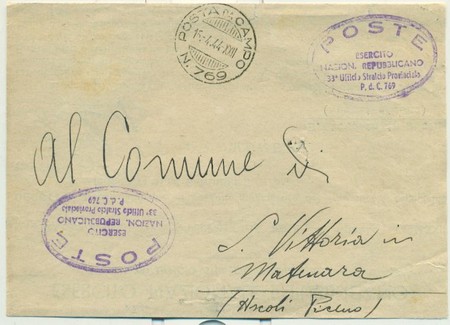 POSTA DA CAMPO
15.4.44.XXII
N. 769
POSTE
ESERCITO
NAZION. REPUBBLICANO
33ª Ufficio Stralcio Provinciale
P. d. C. 769
Al Comune di
S. Vittoria in
Matenara
(Ascoli Piceno)
POSTE
ESERCITO
NAZION. REPUBBLICANO
33ª Ufficio Stralcio Provinciale
P. d. C. 769